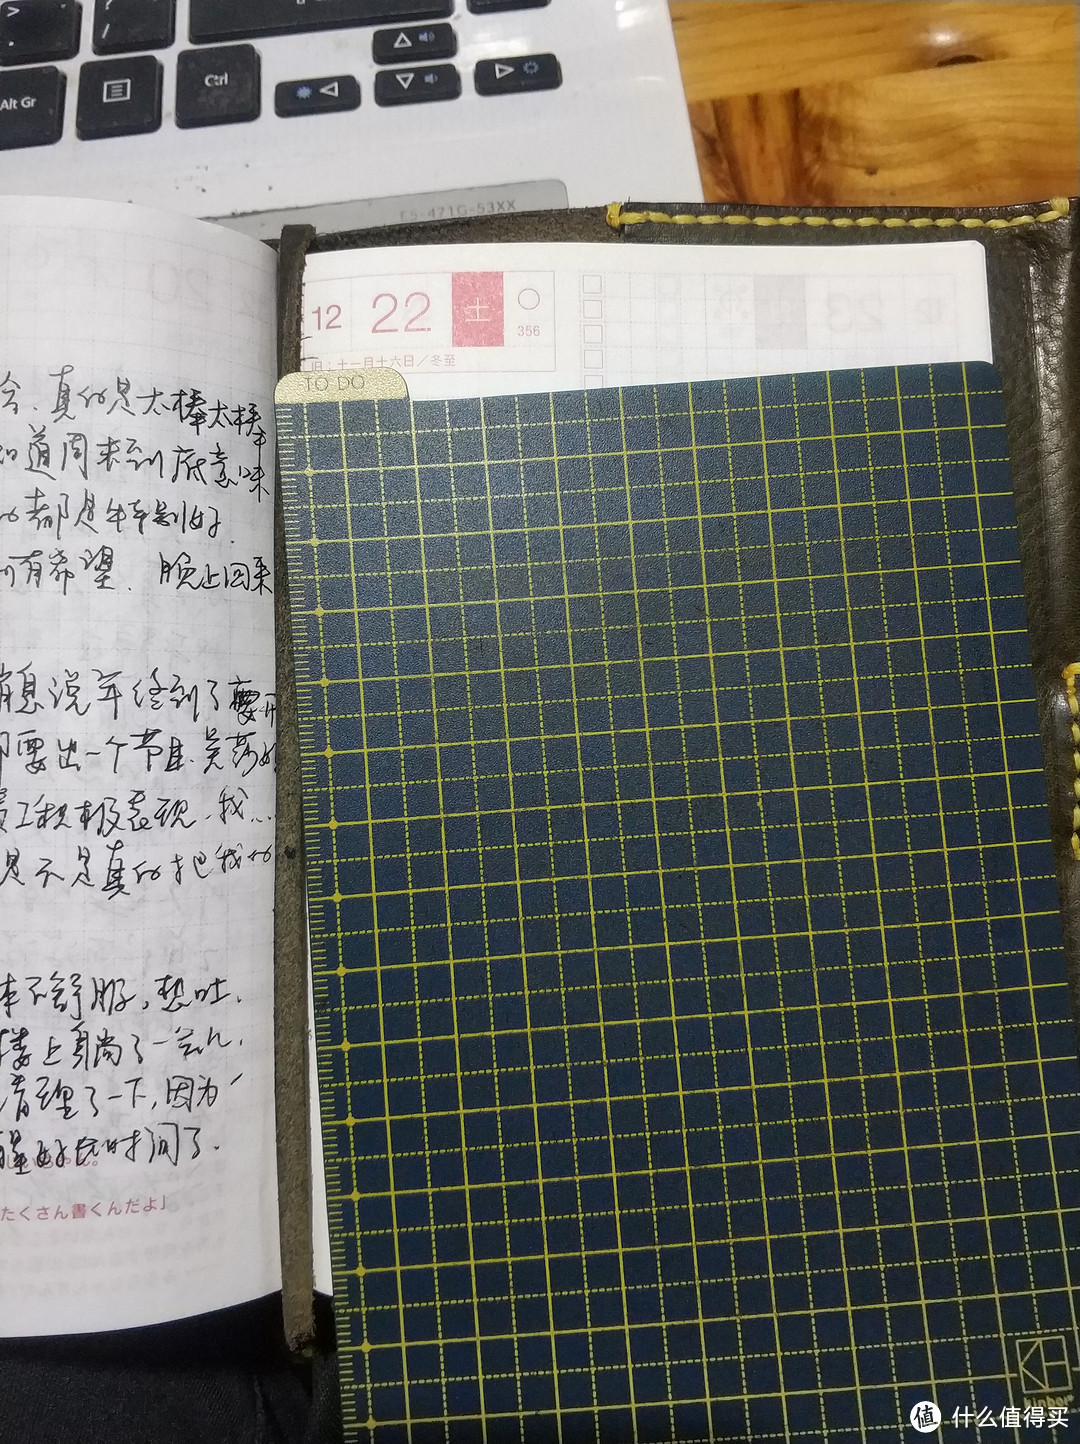 Alt Gr
Ctrl
E5-471G-53XX
12 22 土
356
旧:十一月十六日／冬至
TO DO
会、真的是太棒太棒
知道周末到底意味
的都是特别好.
有希望. 晚上回来
消息说年终到了要开
都要出一个节目.
员工积极表现、我...
是不是真的把我的
体不舒服，想吐，
楼上躺了一会儿，
清理了一下，因为
好长时间了.
たくさん書くんだよ」
值 什么值得买